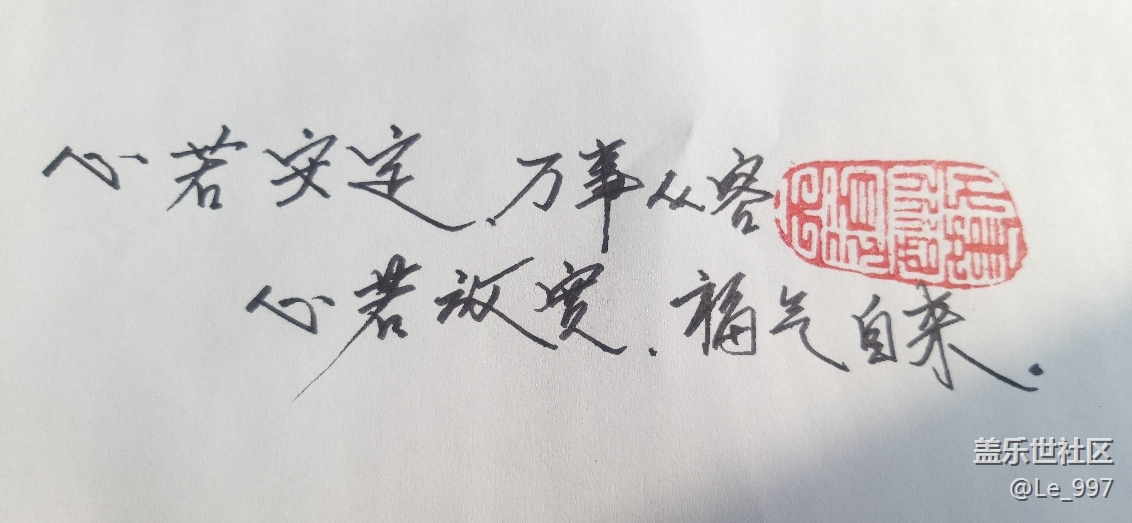 心若安定、万事从容
心若放宽.福气自来.
盖乐世社区
@Le_997